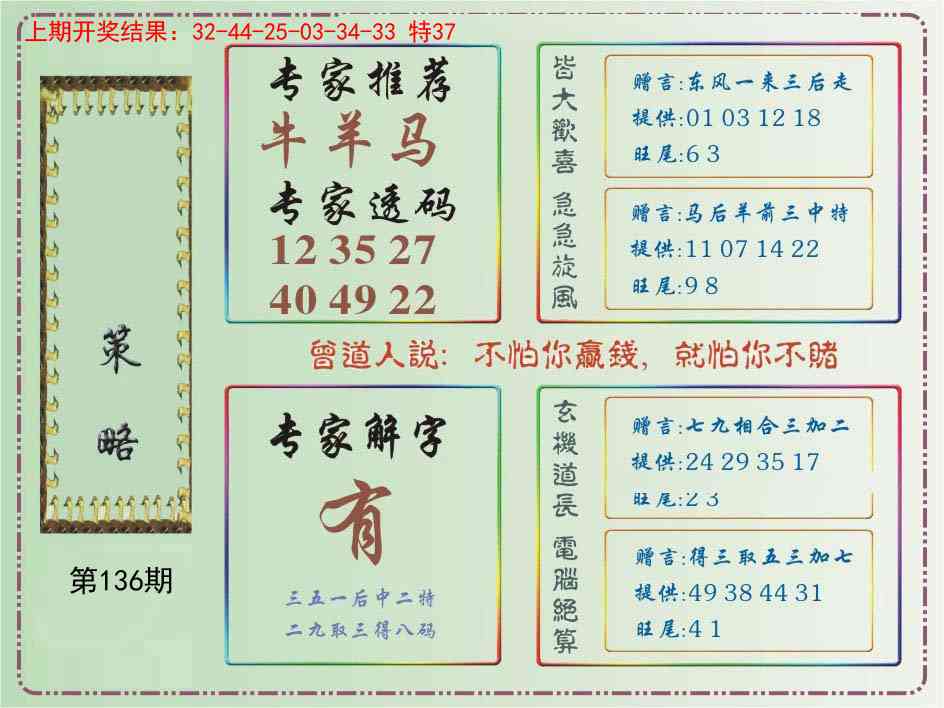 上期开奖结果：32-44-25-03-34-33 特37
策略
第136期
专家推荐
牛羊马
专家透码
12 35 27
40 49 22
皆大歡喜
赠言:东风一来三后走
提供:01 03 12 18
旺尾:6 3
急急旋風
赠言:马后羊前三中特
提供:11 07 14 22
旺尾:9 8
曾道人説：不怕你贏錢，就怕你不賭
专家解字
有
三五一后中二特
二九取三得八码
玄機道長
赠言:七九相合三加二
提供:24 29 35 17
旺尾:2 3
電腦絕算
赠言:得三取五三加七
提供:49 38 44 31
旺尾:4 1